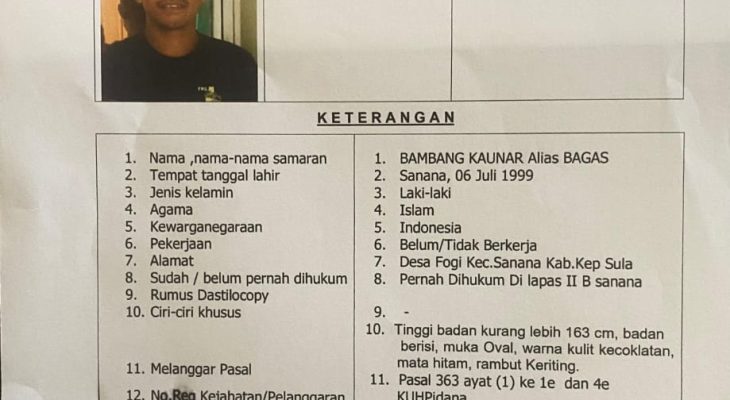 KETERANGAN
1. Nama ,nama-nama samaran
2. Tempat tanggal lahir
3. Jenis kelamin
4. Agama
5. Kewarganegaraan
6. Pekerjaan
7. Alamat
8. Sudah / belum pernah dihukum
9. Rumus Dastilocopy
10. Ciri-ciri khusus
11. Melanggar Pasal
12. No.Reg Kejahatan/Pelanggaran
1. BAMBANG KAUNAR Alias BAGAS
2. Sanana, 06 Juli 1999
3. Laki-laki
4. Islam
5. Indonesia
6. Belum/Tidak Berkerja
7. Desa Fogi Kec.Sanana Kab.Kep Sula
8. Pernah Dihukum Di lapas II B sanana
9. -
10. Tinggi badan kurang lebih 163 cm, badan
berisi, muka Oval, warna kulit kecoklatan,
mata hitam, rambut Keriting.
11. Pasal 363 ayat (1) ke 1e dan 4e
KUHPidana